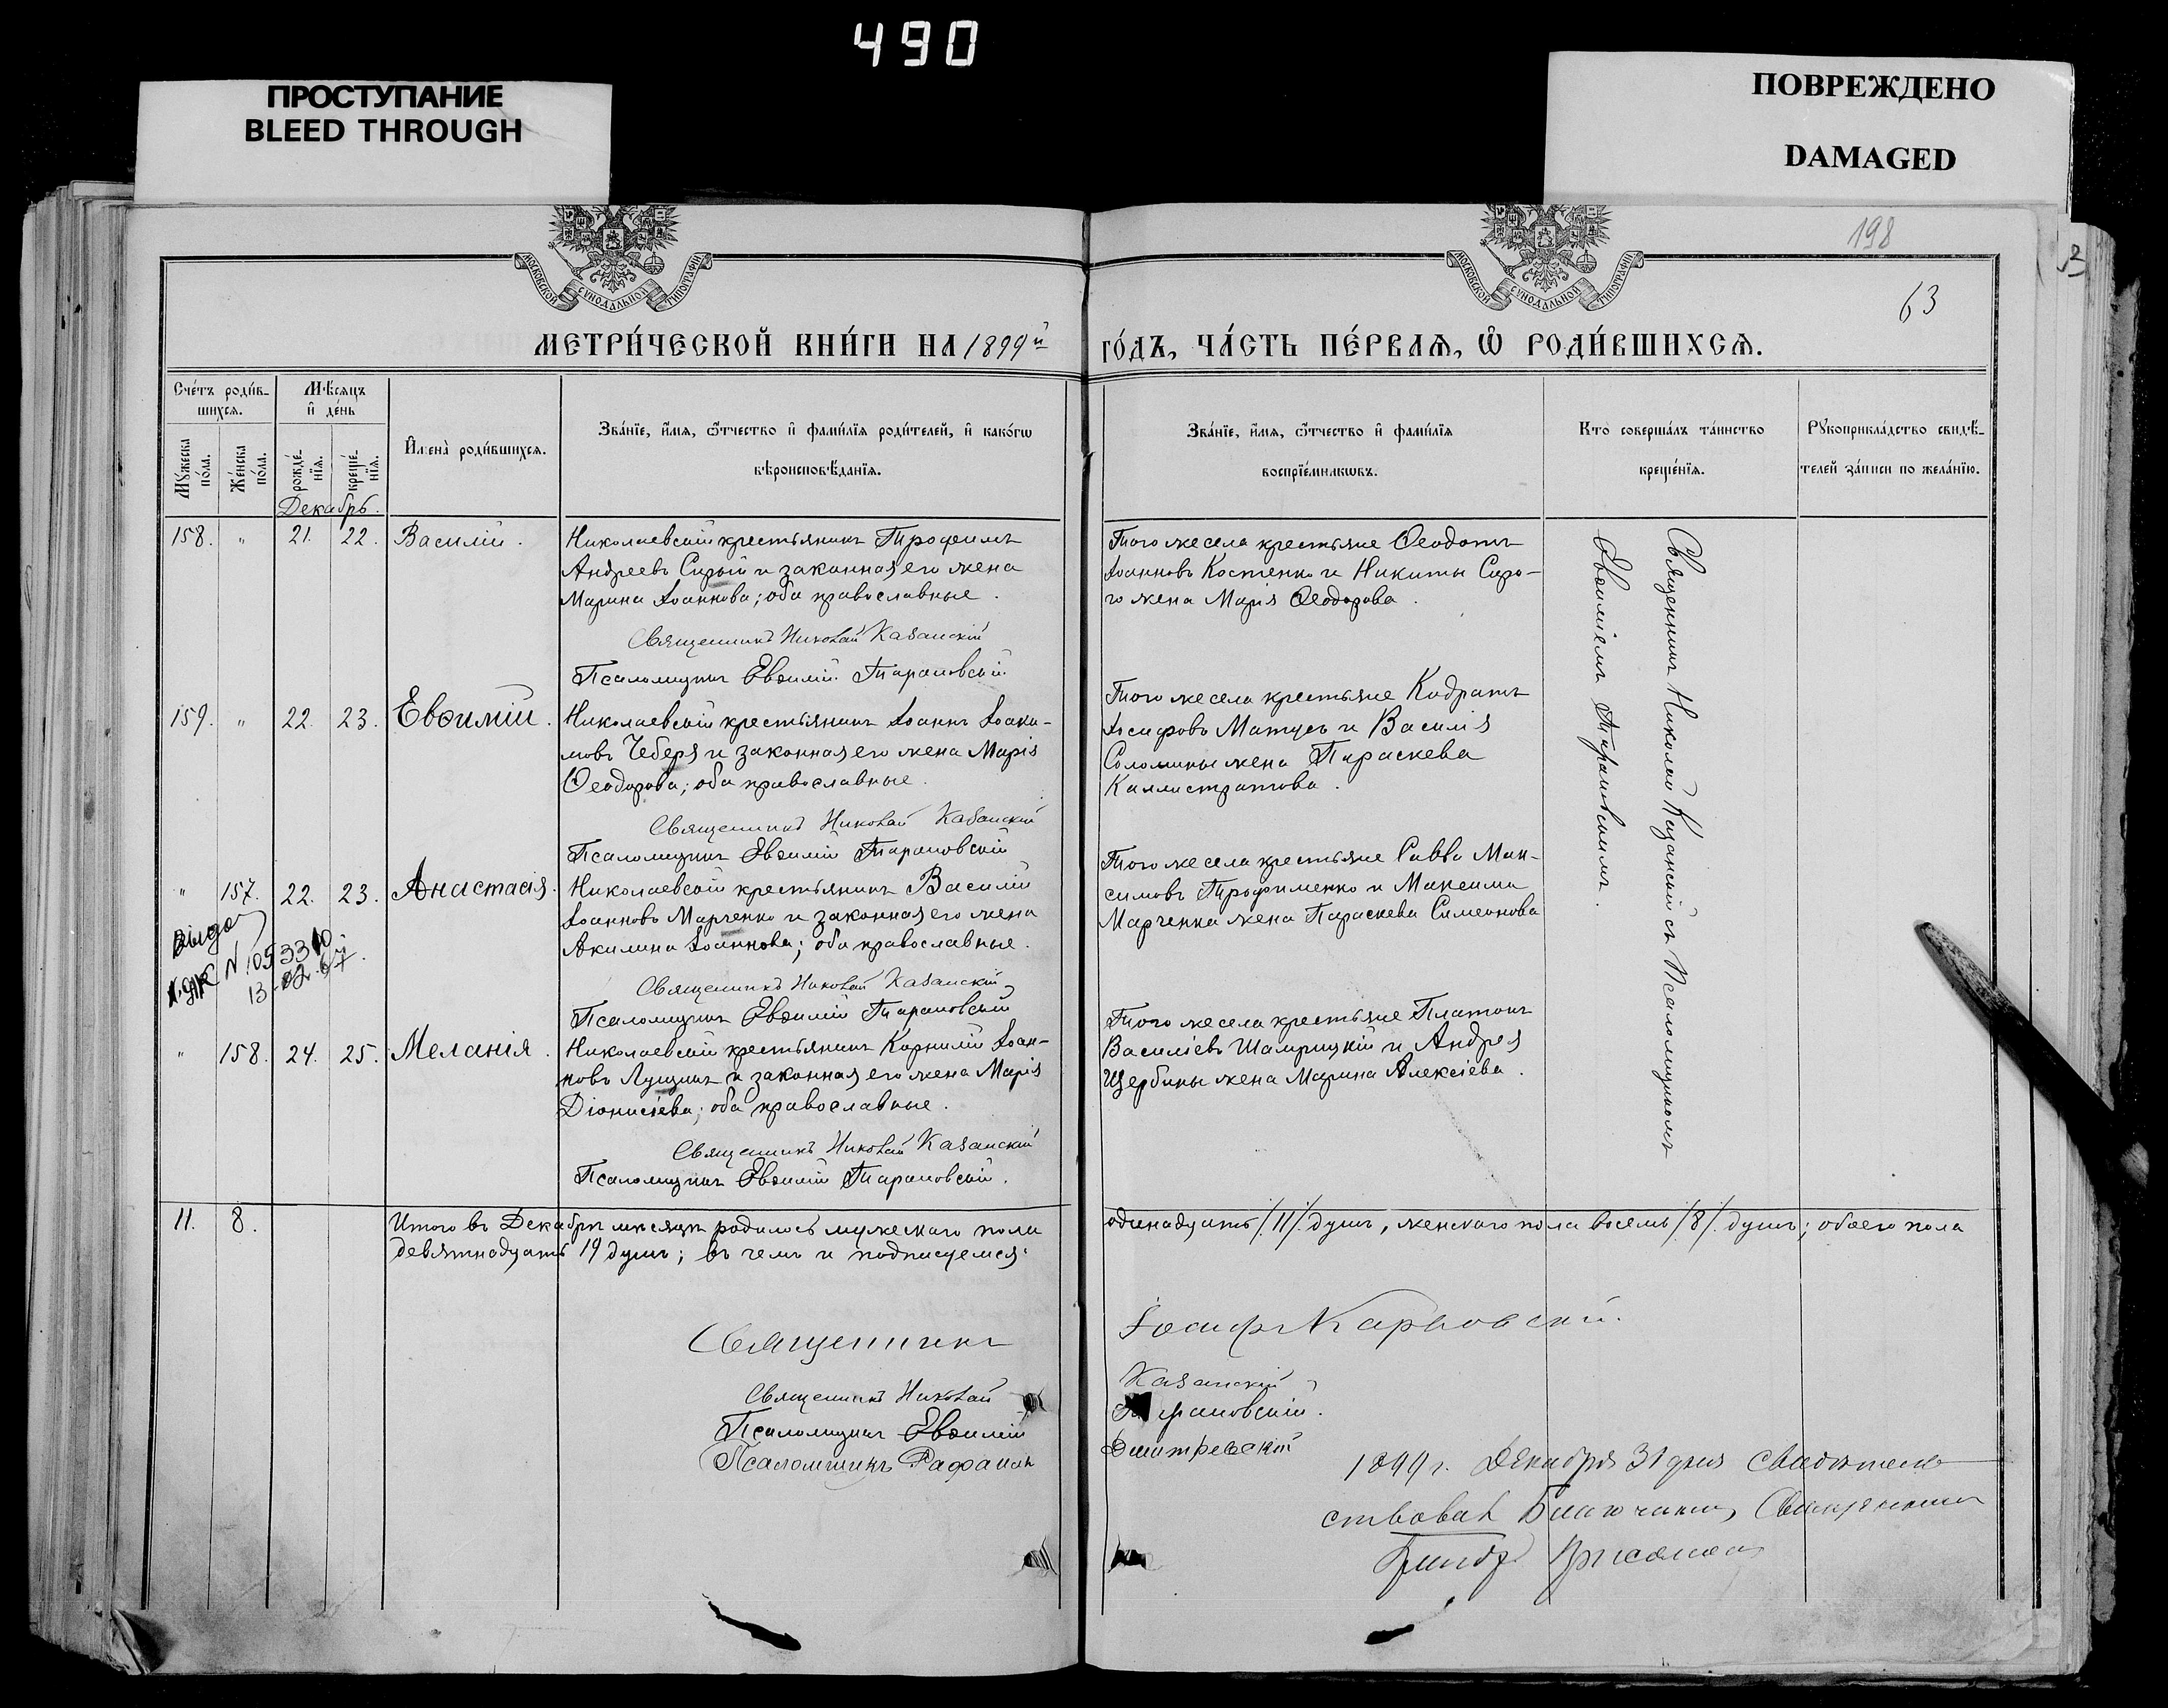 490
ПРОСТУПАНИЕ
BLEED THROUGH
ПОВРЕЖДЕНО
DAMAGED
198
63
МОСКОВСКОЙ СѴНОДАЛЬНОЙ ТИПОГРАФІИ
МОСКОВСКОЙ СѴНОДАЛЬНОЙ ТИПОГРАФІИ
МЕТРИ́ЧЕСКОЙ КНИ́ГИ НА 1899й ГО́ДЪ, ЧА́СТЬ ПЕ́РВАѦ, Ѡ҆ РОДИ́ВШИХСѦ.
Сче́тъ роди́в-
шихсѧ.
Мꙋ́жеска по́ла.
Же́нска по́ла.
Мѣ́сѧцъ
и҆ де́нь
рожде́-
нїѧ.
креще́-
нїѧ.
Декабрь.
И҆мена̀ роди́вшихсѧ.
Зва́нїе, и҆́мѧ, ѻ҆́тчество и҆ фами́лїѧ роди́телей, и҆ како́гѡ
вѣроисповѣ́данїѧ.
Зва́нїе, и҆́мѧ, ѻ҆́тчество и҆ фами́лїѧ
воспрїе́мникѡвъ.
Кто̀ соверша́лъ та́инство
креще́нїѧ.
Рꙋкоприкла́дство свидѣ́-
телей за́писи по жела́нїю.
158. " 21. 22. Василій.
Николаевскій крестьянинъ Трофимъ
Андреевъ Сирый и законная его жена
Марина Іоаннова; оба православные.
Священникъ Николай Казанскій
Псаломщикъ Евѳимій Тарановскій
Того же села крестьяне Ѳеодотъ
Іоанновъ Костенко и Никиты Сиро-
го жена Марія Ѳеодорова.
159. " 22. 23. Евѳимій.
Николаевскій крестьянинъ Іоаннъ Іоаки-
мовъ Чеберя и законная его жена Марія
Ѳеодорова; оба православные.
Священникъ Николай Казанскій
Псаломщикъ Евѳимій Тарановскій
Того же села крестьяне Кодратъ
Іосифовъ Матусъ и Василія
Соломины жена Параскева
Каллистратова.
" 157. 22. 23. Анастасія.
Николаевскій крестьянинъ Василій
Іоанновъ Марченко и законная его жена
Акилина Іоаннова; оба православные.
Священникъ Николай Казанскій
Псаломщикъ Евѳимій Тарановскій
Того же села крестьяне Савва Мак-
симовъ Трофименко и Максима
Марченка жена Параскева Симеонова
13-02-67.
" 158. 24. 25. Меланія.
Николаевскій крестьянинъ Корнилій Іоан-
новъ Лущикъ и законная его жена Марія
Діонисіева; оба православные.
Священникъ Николай Казанскій
Псаломщикъ Евѳимій Тарановскій.
Того же села крестьяне Платонъ
Василіевъ Шамрицкій и Андрея
Щербины жена Марина Алексіева.
Священникъ Николай Казанскій съ Псаломщикомъ
Евѳиміемъ Тарановскимъ.
11. 8.
Итого въ Декабрѣ мѣсяцѣ родилось мужескаго пола одинадцать /11/ душъ, женскаго пола восемь /8/ душъ; обоего пола
девятнадцать 19 душъ; въ чемъ и подписуемся:
Священникъ Іосифъ Карповскій.
Священникъ Николай Казанскій
Псаломщикъ Евѳимій Тарановскій.
Псаломщикъ Рафаилъ Дмитревскій
1899 г. Декабря 31 дня свидѣтель-
ствовалъ Благочинный, Священникъ